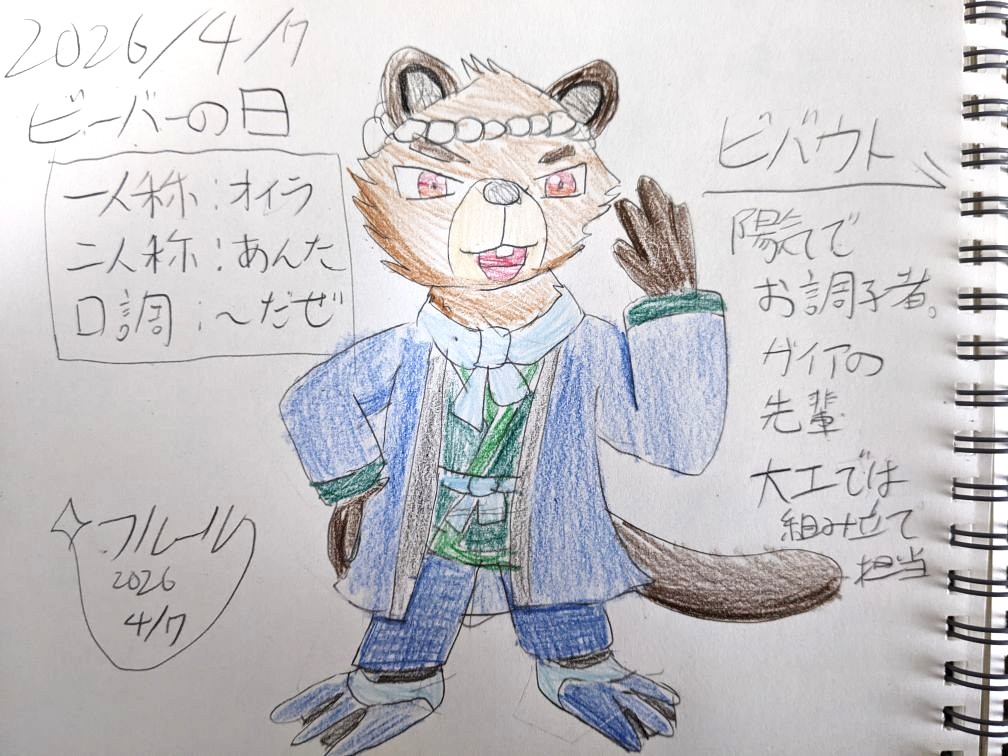 2026/4/7
ビーバーの日
一人称:オイラ
二人称:あんた
口調:~だぜ
ビバウト
陽気で
お調子者。
ガイアの
先輩
大工では
組み立て
担当
フルール
2026
4/7